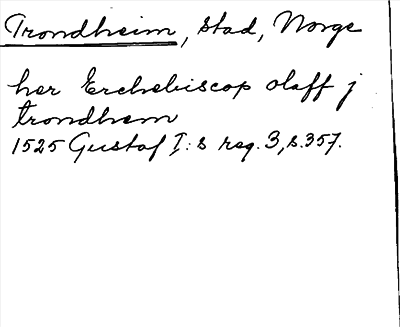 Trondheim, stad, Norge
her Erchebiscop olaff j
trondhem
1525 Gustaf I:s reg. 3, s. 357.